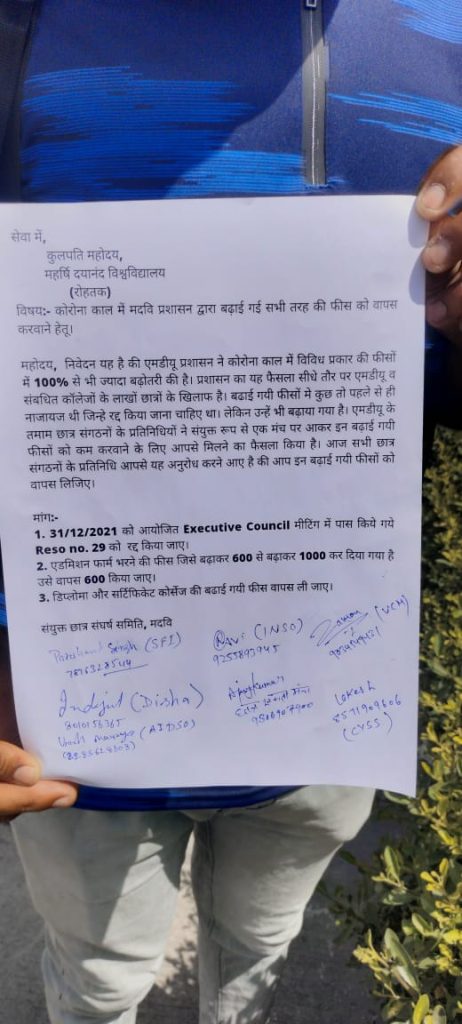 सेवा में,
कुलपति महोदय,
महर्षि दयानंद विश्वविद्यालय
(रोहतक)
विषय:- कोरोना काल में मदवि प्रशासन द्वारा बढ़ाई गई सभी तरह की फीस को वापस
करवाने हेतू।
महोदय, निवेदन यह है की एमडीयू प्रशासन ने कोरोना काल में विविध प्रकार की फीसों
में 100% से भी ज्यादा बढ़ोतरी की है। प्रशासन का यह फैसला सीधे तौर पर एमडीयू व
संबधित कॉलेजों के लाखों छात्रों के खिलाफ है। बढाई गयी फीसों मे कुछ तो पहले से ही
नाजायज थी जिन्हे रद्द किया जाना चाहिए था। लेकिन उन्हें भी बढ़ाया गया है। एमडीयू के
तमाम छात्र संगठनों के प्रतिनिधियों ने संयुक्त रूप से एक मंच पर आकर इन बढ़ाई गयी
फीसों को कम करवाने के लिए आपसे मिलने का फैसला किया है। आज सभी छात्र
संगठनों के प्रतिनिधि आपसे यह अनुरोध करने आए है की आप इन बढ़ाई गयी फीसों को
वापस लिजिए।
मांग:-
1. 31/12/2021 को आयोजित Executive Council मीटिंग में पास किये गये
Reso no. 29 को रद्द किया जाए।
2. एडमिशन फार्म भरने की फीस जिसे बढाकर 600 से बढाकर 1000 कर दिया गया है
उसे वापस 600 किया जाए।
3. डिप्लोमा और सर्टिफिकेट कोर्सेज की बढाई गयी फीस वापस ली जाए।
संयुक्त छात्र संघर्ष समिति, मदवि
Singh (SFI)
Ravi (INSO)
(Disha)
8010156365
(AIDSO)
Lokesh
8571909606
(CYSS)